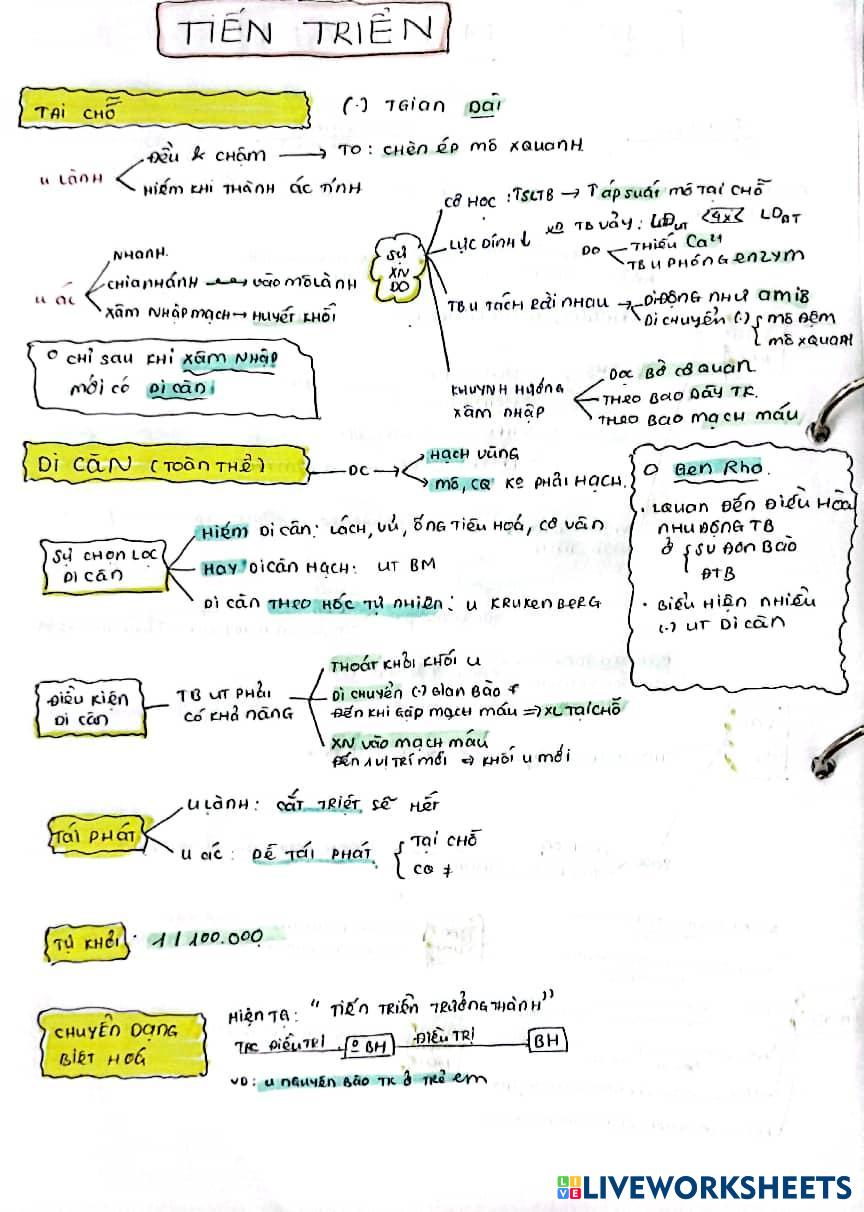 TIẾN TRIỂN
TẠI CHỖ
(.) TGIAN DÀI
U LÀNH
ĐỀU & CHẬM → TO: CHÈN ÉP MÔ XQUANH
HIẾM KHI THÀNH ÁC TÍNH
U ÁC
NHANH.
CHIA NHÁNH → VÀO MÔ LÀNH
XÂM NHẬP MẠCH → HUYẾT KHỐI
SỰ
XN
DO
CƠ HỌC: TSLTB → T ÁP SUẤT MÔ TẠI CHỖ
LỰC DÍNH ↓
XD TB VẢY: LĐUT <4x< LDBT
DO
THIẾU Ca
TB U PHÓNG ENZYM
TB U TÁCH RỜI NHAU →
DI ĐỘNG NHƯ amib
DI CHUYỂN (.) { MÔ ĐỆM
MÔ XQUAN
KHUYNH HƯỚNG
XÂM NHẬP
DỌC BỜ CƠ QUAN
THEO BAO DÂY TK.
THEO BAO MẠCH MÁU
O CHỈ SAU KHI XÂM NHẬP
MỚI CÓ DI CĂN
DI CĂN (TOÀN THỂ)
DC →
HẠCH VÙNG
MÔ, CQ KO PHẢI HẠCH.
SỰ CHỌN LỌC
DI CĂN
HIẾM DI CĂN: LÁCH, VÚ, ỐNG TIÊU HOÁ, CƠ VÂN
HAY DI CĂN HẠCH: UT BM
DI CĂN THEO HỐC TỰ NHIÊN: U KRUKENBERG
O Gen Rho.
. LQUAN ĐẾN ĐIỀU HÒA
NHU ĐỘNG TB
Ở { SỢI ĐƠN BÀO
ĐTB
. BIỂU HIỆN NHIỀU
(.) UT DI CĂN
ĐIỀU KIỆN
DI CĂN
TB UT PHẢI
CÓ KHẢ NĂNG
THOÁT KHỎI KHỐI U
DI CHUYỂN (.) GIAN BÀO
ĐẾN KHI GẶP MẠCH MÁU ⇒ XL TẠI CHỖ
XN VÀO MẠCH MÁU
ĐẾN 1 VỊ TRÍ MỚI ⇒ KHỐI U MỚI
TÁI PHÁT
U LÀNH: CẮT TRIỆT SẼ HẾT
U ÁC: DỄ TÁI PHÁT { TẠI CHỖ
CQ ≠
TỰ KHỎI: 1/100.000
CHUYỂN DẠNG
BIỆT HOÁ
HIỆN TG: "TIẾN TRIỂN TRƯỞNG THÀNH"
TRC ĐIỀU TRỊ
BH
ĐIỀU TRỊ
BH
VD: U NGUYÊN BÀO TK Ở TRẺ EM
LIVEWORKSHEETS